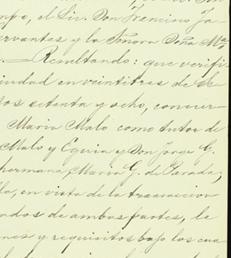 el Lic. Don Francisco Ja
ervantes y la Señora Doña
Resultando: que verifi
iudad en veintitres de
los setenta y ocho, concur
Maria Malo como tutor de
Malo y Eguia y Don Jose G.
hermana, Maria G. de Parada,
en vista de la transaccion
ados de ambas partes, la
nes y requisitos bajo los cua